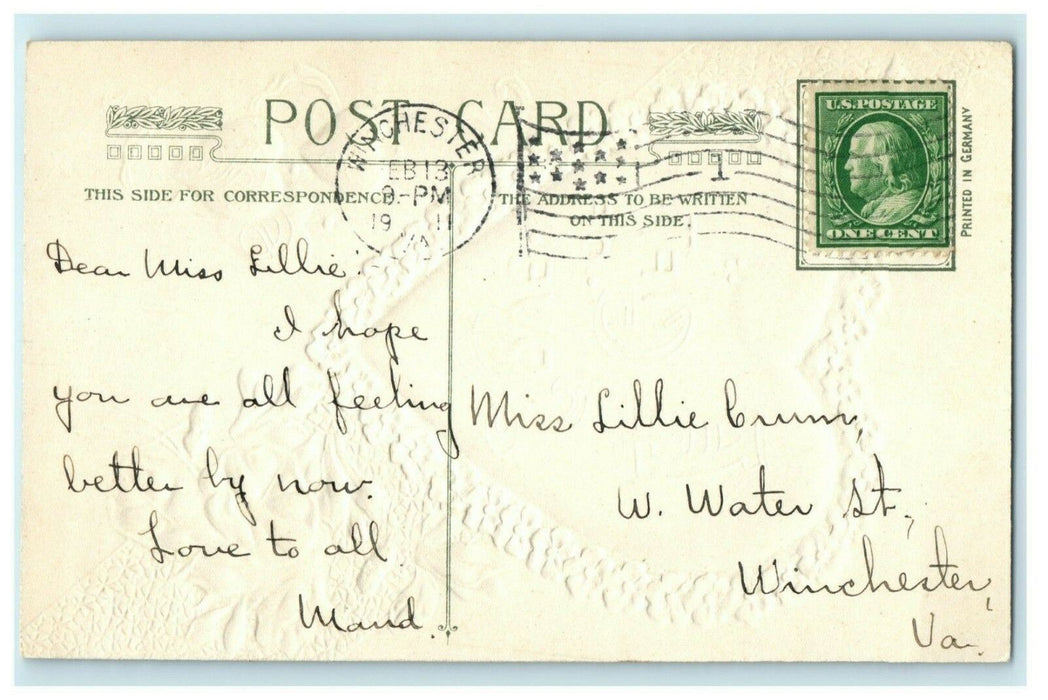 POST CARD
WINCHESTER
EB 13
9-PM
19 11
VA
1
U.S. POSTAGE
ONE CENT
PRINTED IN GERMANY
THIS SIDE FOR CORRESPONDENCE.
THE ADDRESS TO BE WRITTEN
ON THIS SIDE.
Dear Miss Lillie:
I hope
you are all feeling
better by now.
Love to all
Maud.
Miss Lillie Crum,
W. Water St.,
Winchester,
Va.